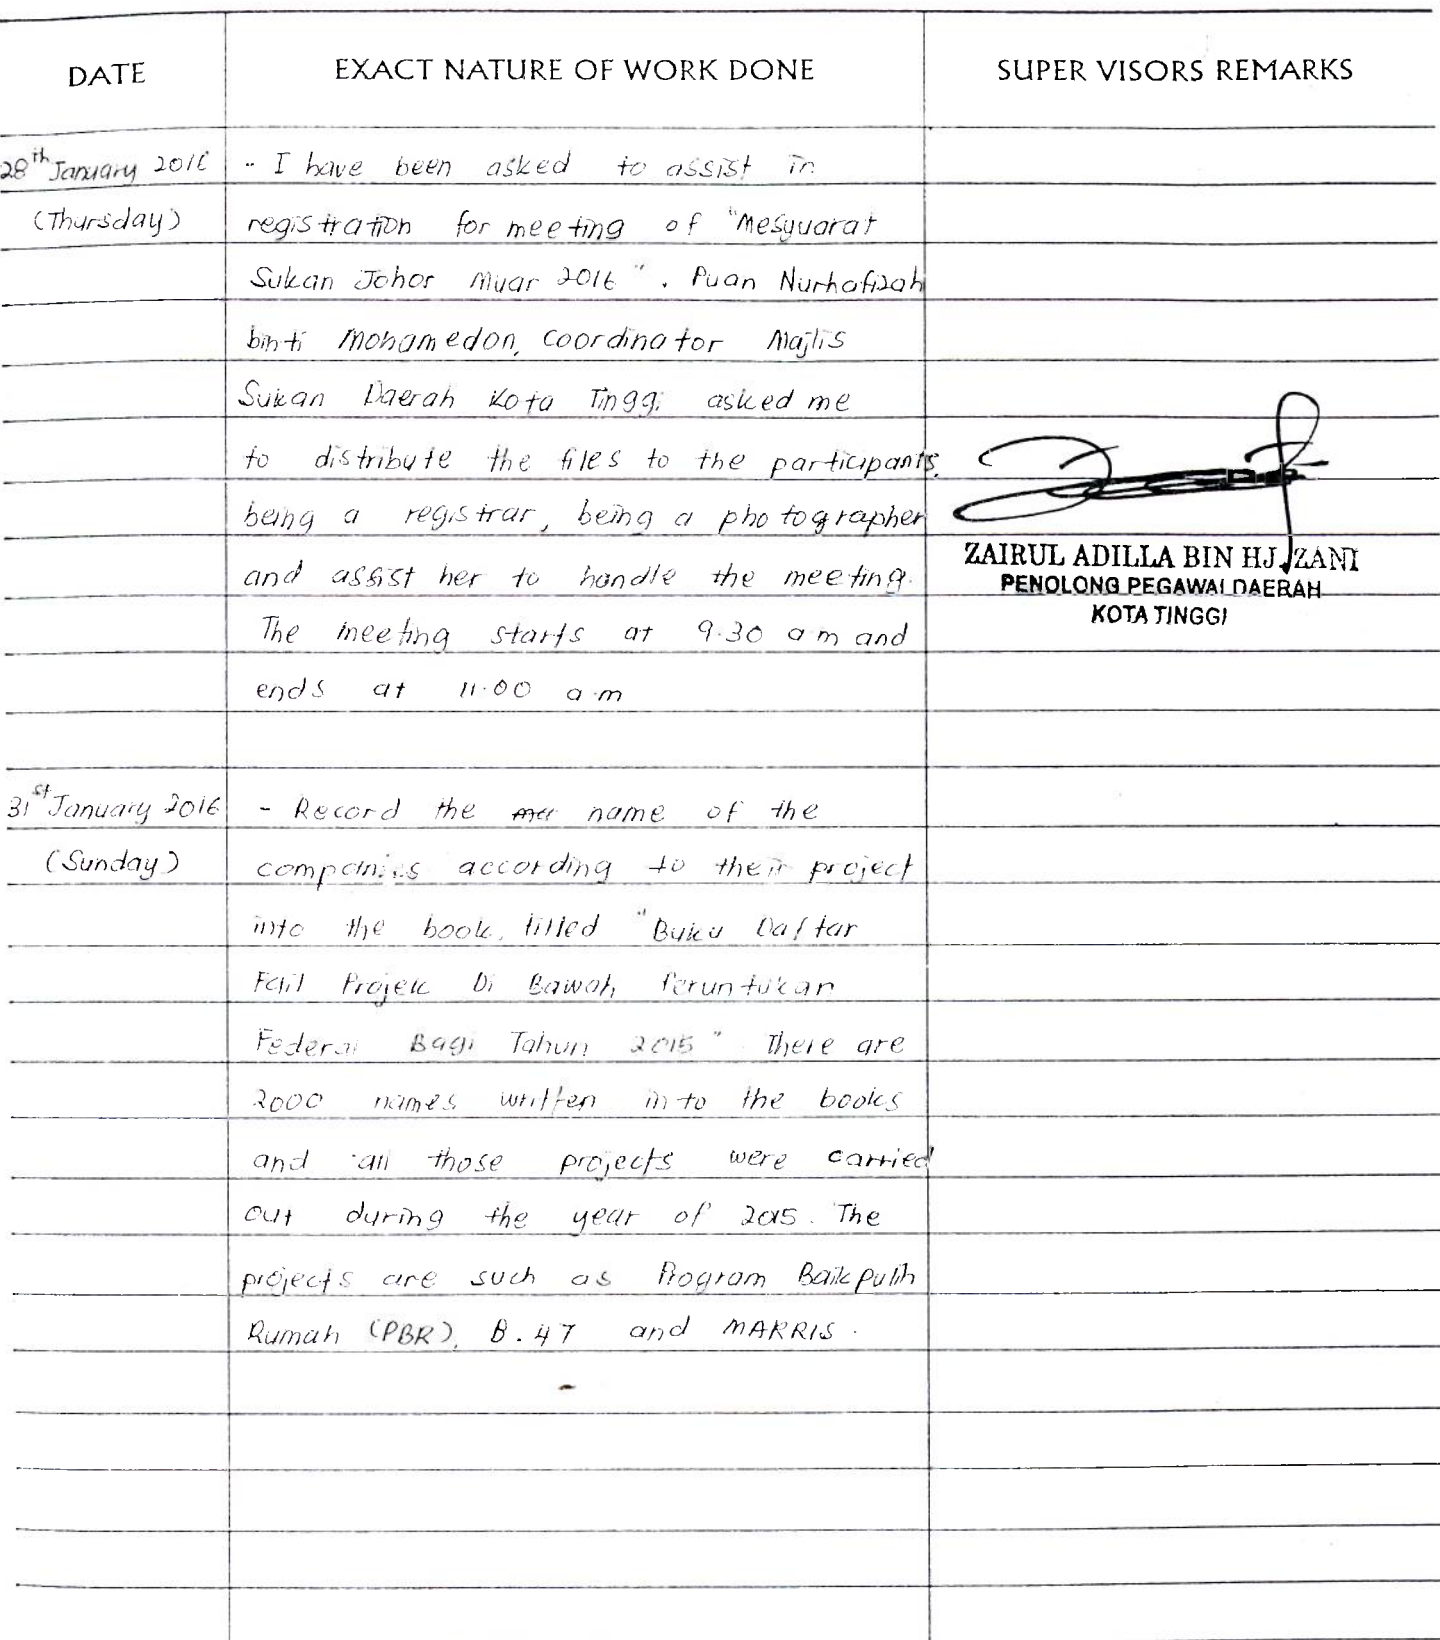 DATE EXACT NATURE OF WORK DONE SUPER VISORS REMARKS
28th January 2016 - I have been asked to assist in
(Thursday) registration for meeting of "Mesyuarat
Sukan Johor Muar 2016". Puan Nurhafizah
binti Mohamedon, Coordinator Majlis
Sukan Daerah Kota Tinggi asked me
to distribute the files to the participants,
being a registrar, being a photographer
and assist her to handle the meeting.
The meeting starts at 9.30 a m and
ends at 11.00 a.m
ZAIRUL ADILLA BIN HJ. ZANI
PENOLONG PEGAWAI DAERAH
KOTA TINGGI
31st January 2016 - Record the name of the
(Sunday) companies according to their project
into the book, titled "Buku Daftar
Fail Projek Di Bawah Peruntukan
Federal Bagi Tahun 2015" There are
2000 names written into the books
and all those projects were carried
out during the year of 2015. The
projects are such as Program Baikpulih
Rumah (PBR), B.47 and MARRIS.